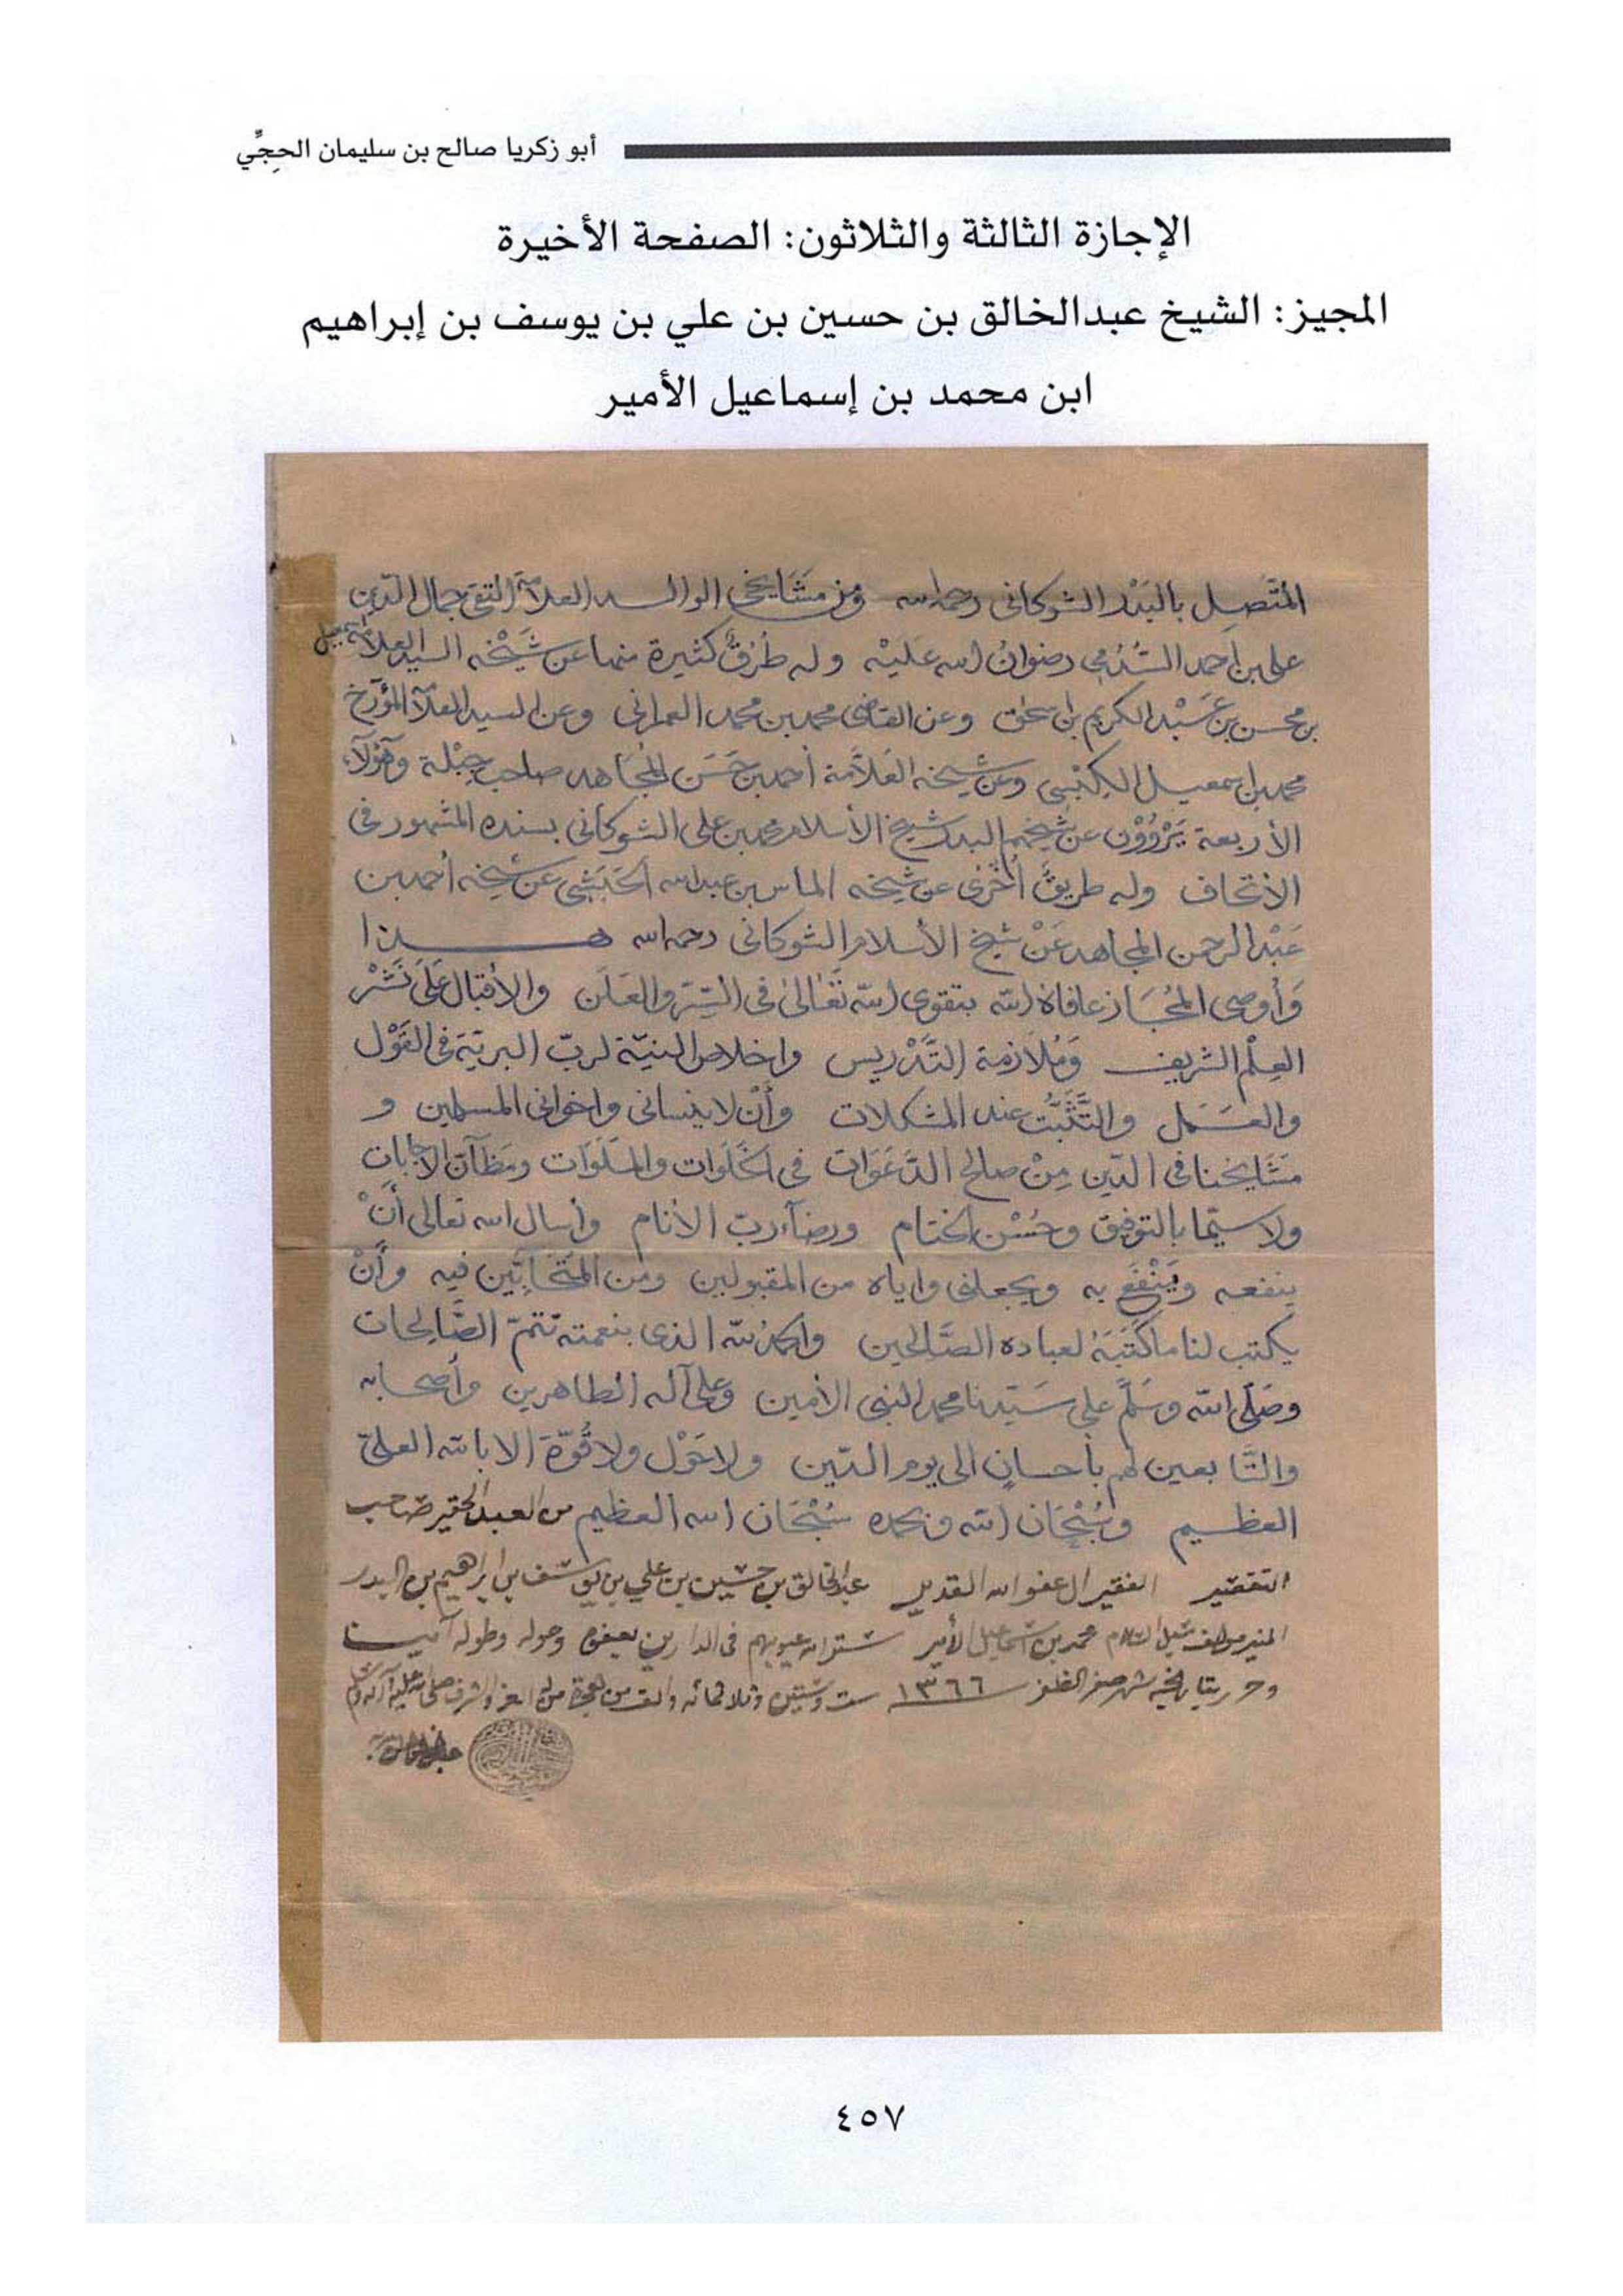 أبو زكريا صالح بن سليمان الحجِّي
الإجازة الثالثة والثلاثون: الصفحة الأخيرة
المجيز: الشيخ عبدالخالق بن حسين بن علي بن يوسف بن إبراهيم
ابن محمد بن إسماعيل الأمير
المتَّصِل بالبَدْر الشوكانى رحمه الله ومن مَشَايخى الوالد العلامة التقى جمال الدين
على بن أحمد السُّدُمى رضوانُ الله عَليْه وله طُرُقٌ كثيرة منها عن شَيْخه السيد العلامة اسمعيل
بن محسن بن عَبْد الكريم بن اسحق وعن القاضى محمد بن محمد العمرانى وعن السيد العلامة المؤرّخ
محمد بن اسمعيل الكِبْسِى وعن شيخه العَلاَّمة أحمد بن حَسَن المُجَاهد صاحب جِبْلة وهَؤلآء
الأربعة يَرْوُوْن عن شيخهم البدر شيخ الأسلام محمد بن على الشوكانى بسنده المشهور فى
الأتحاف وله طريقٌ أُخْرَى عن شيخه الماس بن عبد الله الحَبَشِى عن شيخه أحمد بن
عَبْد الرحمن المجاهد عَنْ شيخ الأسلام الشوكانى رحمه الله هـــذا
وَأوصى المُجَاز عافاهُ اللّه بتقوى اللّه تَعَالىٰ فى السِّرّ والعَلَن والأقبال عَلَى نَشْر
العِلْم الشريف وَمُلاَزمة التَّدْريس واخلاص النيّة لربّ البريّة فى القَوْل
والعَمَل والتَّثَبُّت عند المشكلات وأنْ لا ينسانى واخوانى المسلمين و
مَشَايخنا فى الدّين مِنْ صالح الدَّعَوَات فى الخَلَوات والجَلَوَات ومَظَآن الأجابات
ولا سيّما بالتوفيق وحُسْن الختام ورضآء ربّ الأنام وأسال الله تعالى أنْ
ينفعه ويَنْفَع به ويجعلنى واياه من المقبولين ومن المتَحَابِّين فيه وأنْ
يكتب لنا ما كَتَبَهُ لعباده الصَّالحين والحمدُ للّه الذى بنعمته تتمّ الصَّالحات
وصَلَّى اللّه وسَلَّم على سَيّدنا محمد النبى الأمين وعلى آله الطاهرين وأصحابه
والتَّابعين لهم بأحسانٍ الى يوم الدّين ولا حَوْل ولا قُوّة الا بالله العلىّ
العظيم وسُبْحَان اللّه وبحمده سُبْحَان الله العظيم من العبد الحقير صاحب
التقصير الفقير الى عفو الله القدير عبد الخالق بن حسين بن علي بن يوسف بن ابراهيم بن البدر
المنير مؤلف سبل السلام محمد بن اسماعيل الأمير ستر الله عيوبهم فى الدارين بعفوه وحوله وطوله آمين
وحرر بتاريخه شهر صفر الظفر ١٣٦٦ ست وستين وثلاثمائه والف من هجرة من له العز والشرف صلى الله عليه وآله وسلم
٤٥٧